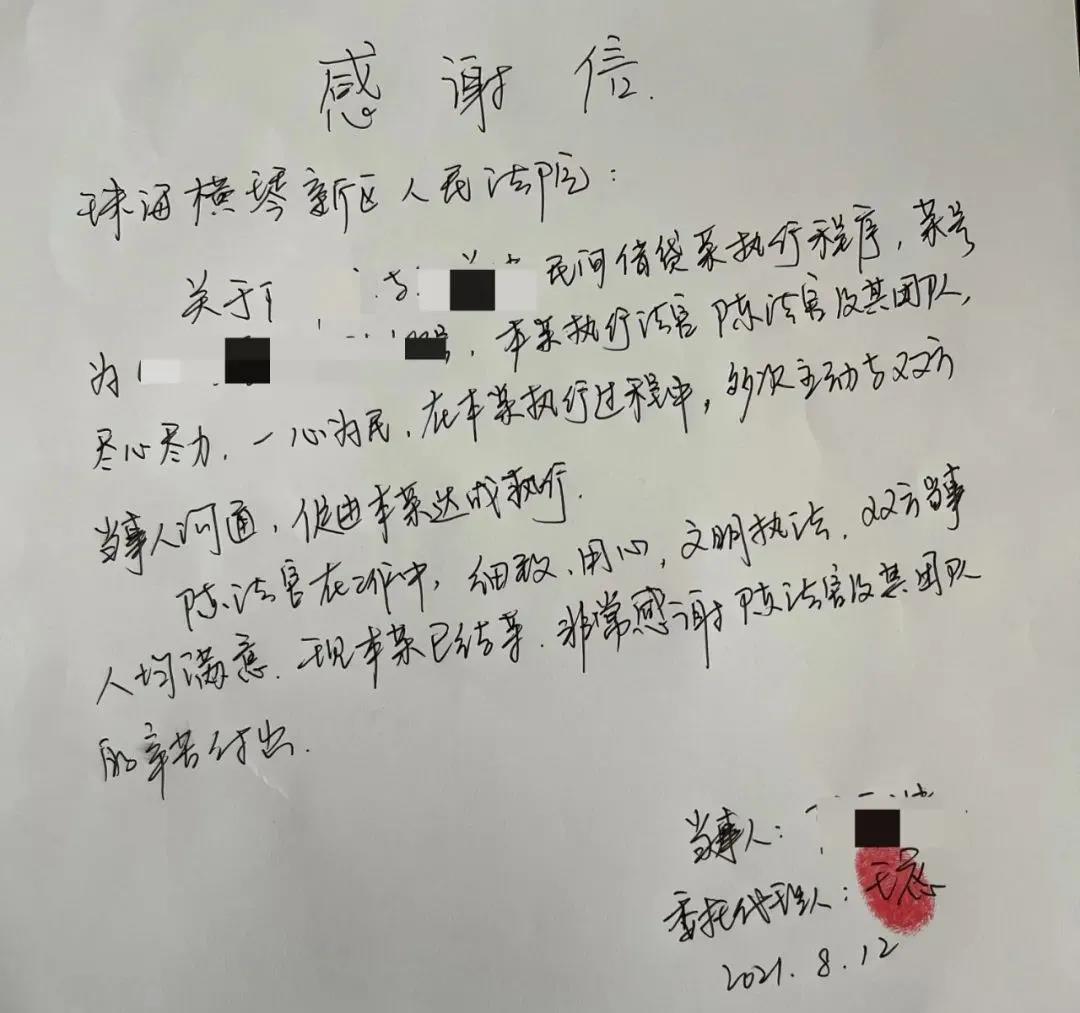 感谢信.
珠海横琴新区人民法院:
关于 与 民间借贷案执行程序,案号
为 号,本案执行法官陈法官及其团队,
尽心尽力,一心为民,在本案执行过程中,多次主动与双方
当事人沟通,促进本案达成执行.
陈法官在工作中,细致、用心,文明执法.双方当事
人均满意.现本案已结案.非常感谢陈法官及其团队
的辛苦付出.
当事人:
委托代理人:王
2021.8.12